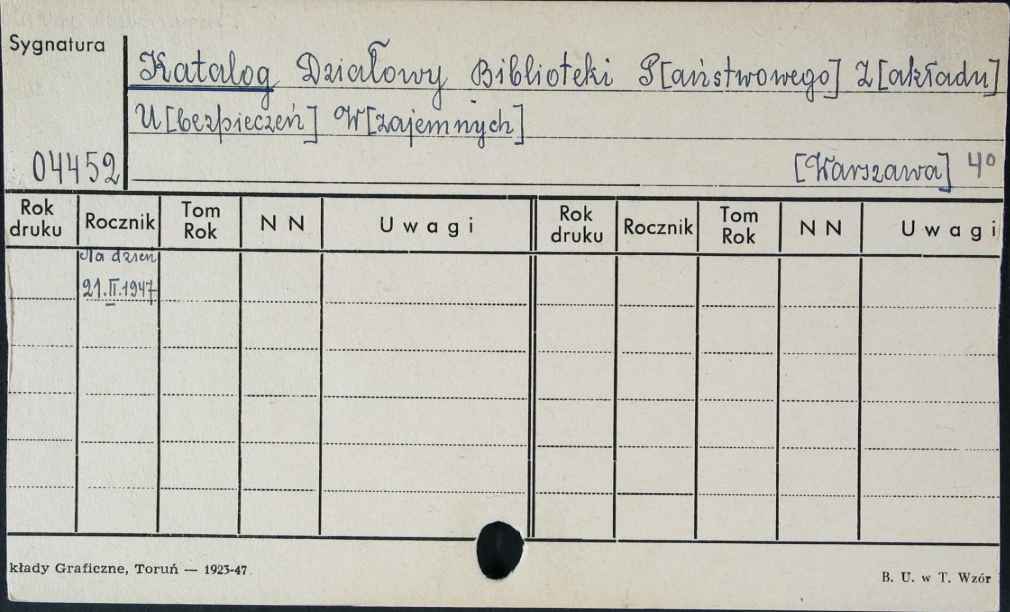 Sygnatura
Katalog Działowy Biblioteki P[aństwowego] Z[akładu]
U[bezpieczeń] W[zajemnych]
04452
[Warszawa] 4º
Rok druku Rocznik Tom Rok N N Uwagi Rok druku Rocznik Tom Rok N N Uwagi
Na dzień
21.II.1947
kłady Graficzne, Toruń — 1923-47.
B. U. w T. Wzór